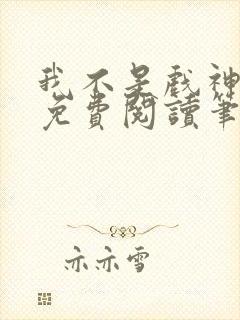 我不是戲神
免費閱讀筆
亦亦雪